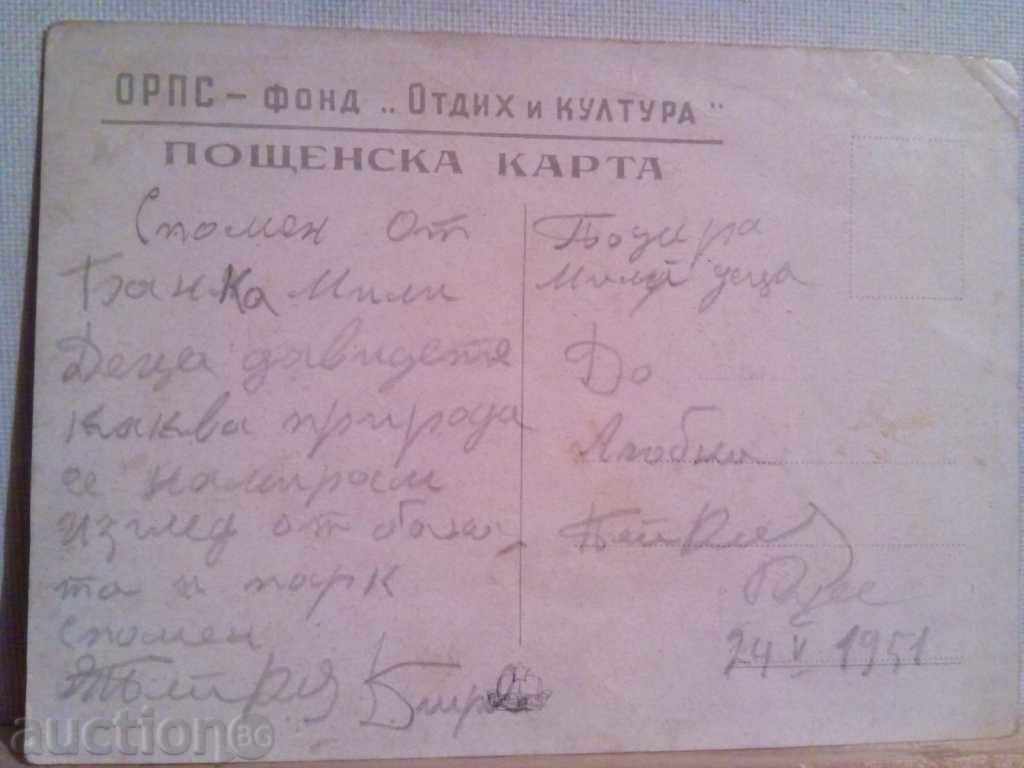 ОРПС – ФОНД „ОТДИХ И КУЛТУРА"
ПОЩЕНСКА КАРТА
Спомен от
Банка Мили
Деца да видете
каква природа
се намирам
изглед от баня
та и парк
спомен
Мили деца
До
Русе
24 V 1951
auction BG